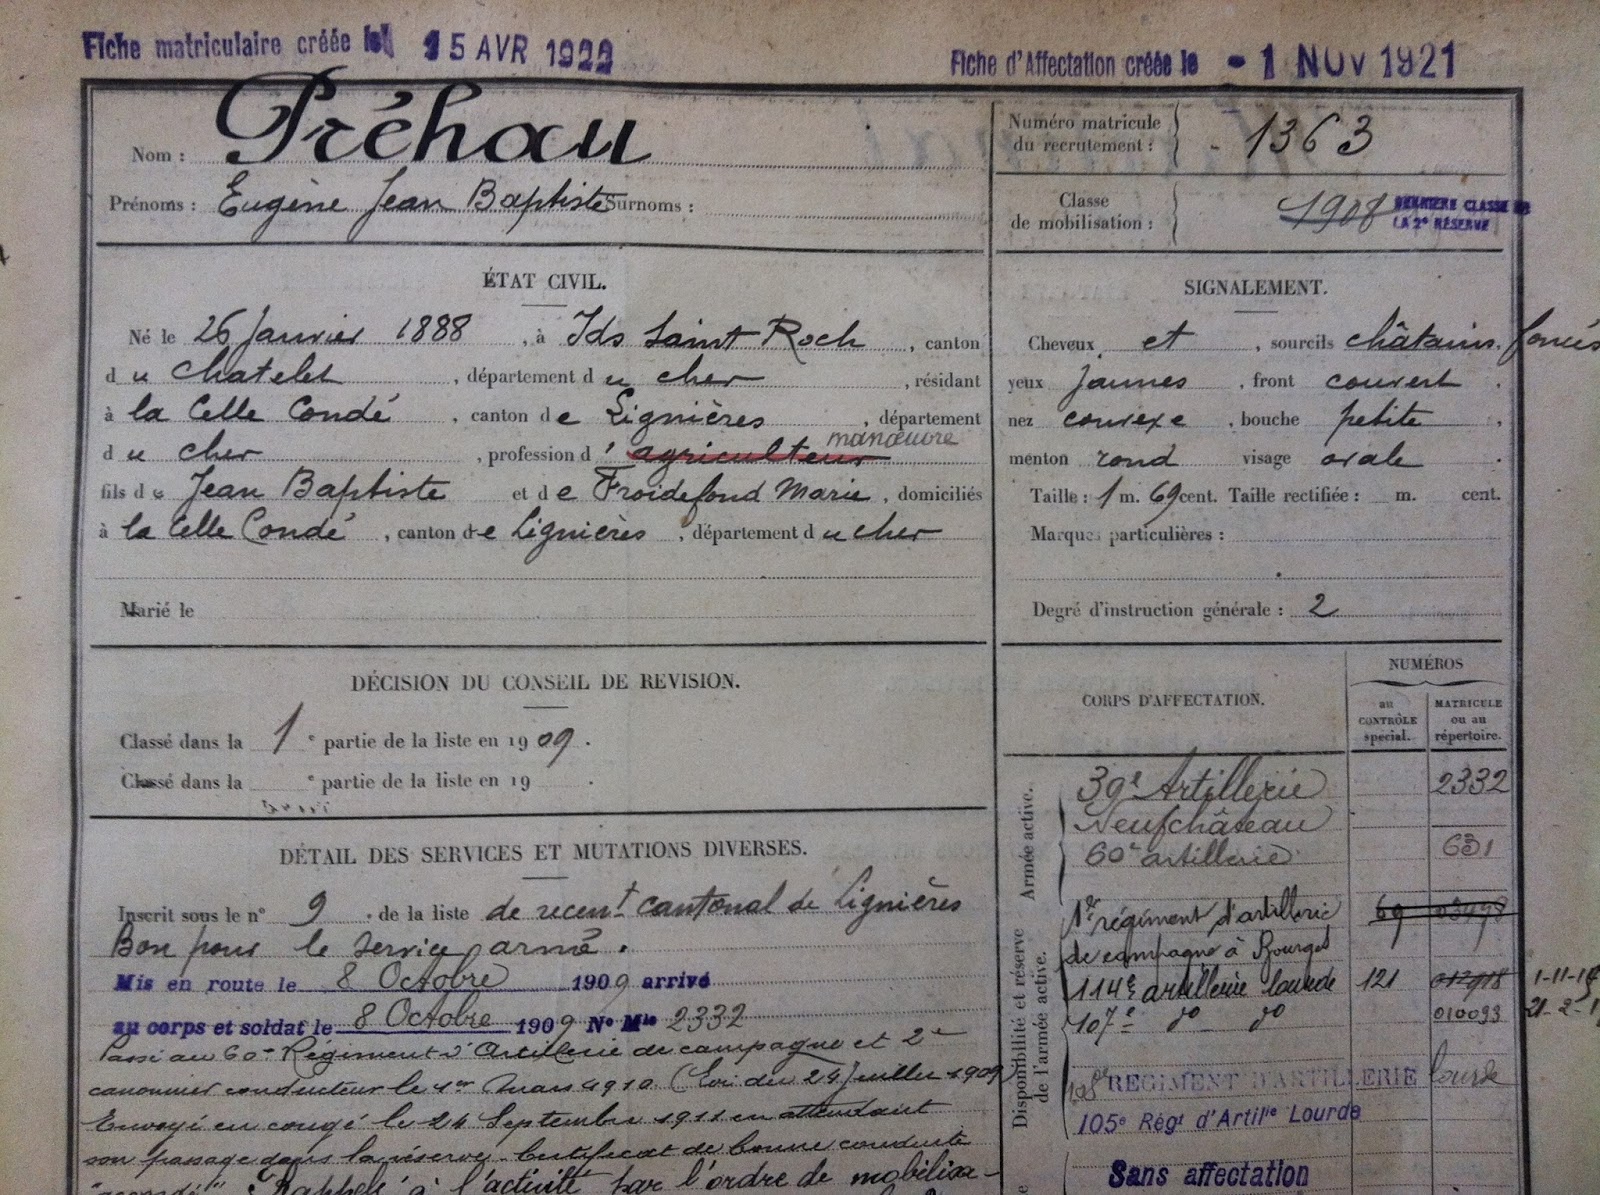 Fiche matriculaire créée le 15 AVR 1922
Fiche d'Affectation créée le - 1 NOV 1921
Nom : Préhau
Prénoms : Eugène Jean Baptiste Surnoms :
Numéro matricule du recrutement : - 1363
Classe de mobilisation : 1908 DERNIÈRE CLASSE DE LA 2e RÉSERVE
ÉTAT CIVIL.
Né le 26 Janvier 1888, à Ids Saint Roch, canton
du Chatelet, département du cher, résidant
à la Celle Condé, canton de Lignières, département
du cher, profession d'agriculteur manœuvre
fils de Jean Baptiste et de Froidefond Marie, domiciliés
à la Celle Condé, canton de Lignières, département du cher
Marié le
SIGNALEMENT.
Cheveux et, sourcils châtains foncés
yeux jaunes, front couvert.
nez convexe, bouche petite,
menton rond visage ovale.
Taille : 1 m. 69 cent. Taille rectifiée : m. cent.
Marques particulières :
Degré d'instruction générale : 2
DÉCISION DU CONSEIL DE REVISION.
Classé dans la 1e partie de la liste en 1909.
Classé dans la e partie de la liste en 19 .
DÉTAIL DES SERVICES ET MUTATIONS DIVERSES.
Inscrit sous le n° 9 de la liste de recent cantonal de Lignières
Bon pour le service armé.
Mis en route le 8 Octobre 1909 arrivé
au corps et soldat le 8 Octobre 1909 N° Mle 2332
Passé au 60e Régiment d'Artillerie de campagne et 2e
canonnier conducteur le 1er Mars 1910 (Loi du 24 Juillet 1909
Envoyé en congé le 24 Septembre 1911 en attendant
son passage dans la réserve. Certificat de bonne conduite
"accordé". Rappelé à l'activité par l'ordre de mobilisa-
CORPS D'AFFECTATION.
NUMÉROS
au CONTRÔLE spécial.
MATRICULE ou au répertoire.
Armée active.
39e Artillerie 2332
Neufchâteau
60e artillerie 631
Disponibilité et réserve de l'armée active.
1er régiment d'artillerie 69
de campagne à Bourges
114e artillerie lourde 121 012918
107e do do 010093
108e RÉGIMENT D'ARTILLERIE lourde
105e Régt d'Artilie Lourde
Sans affectation